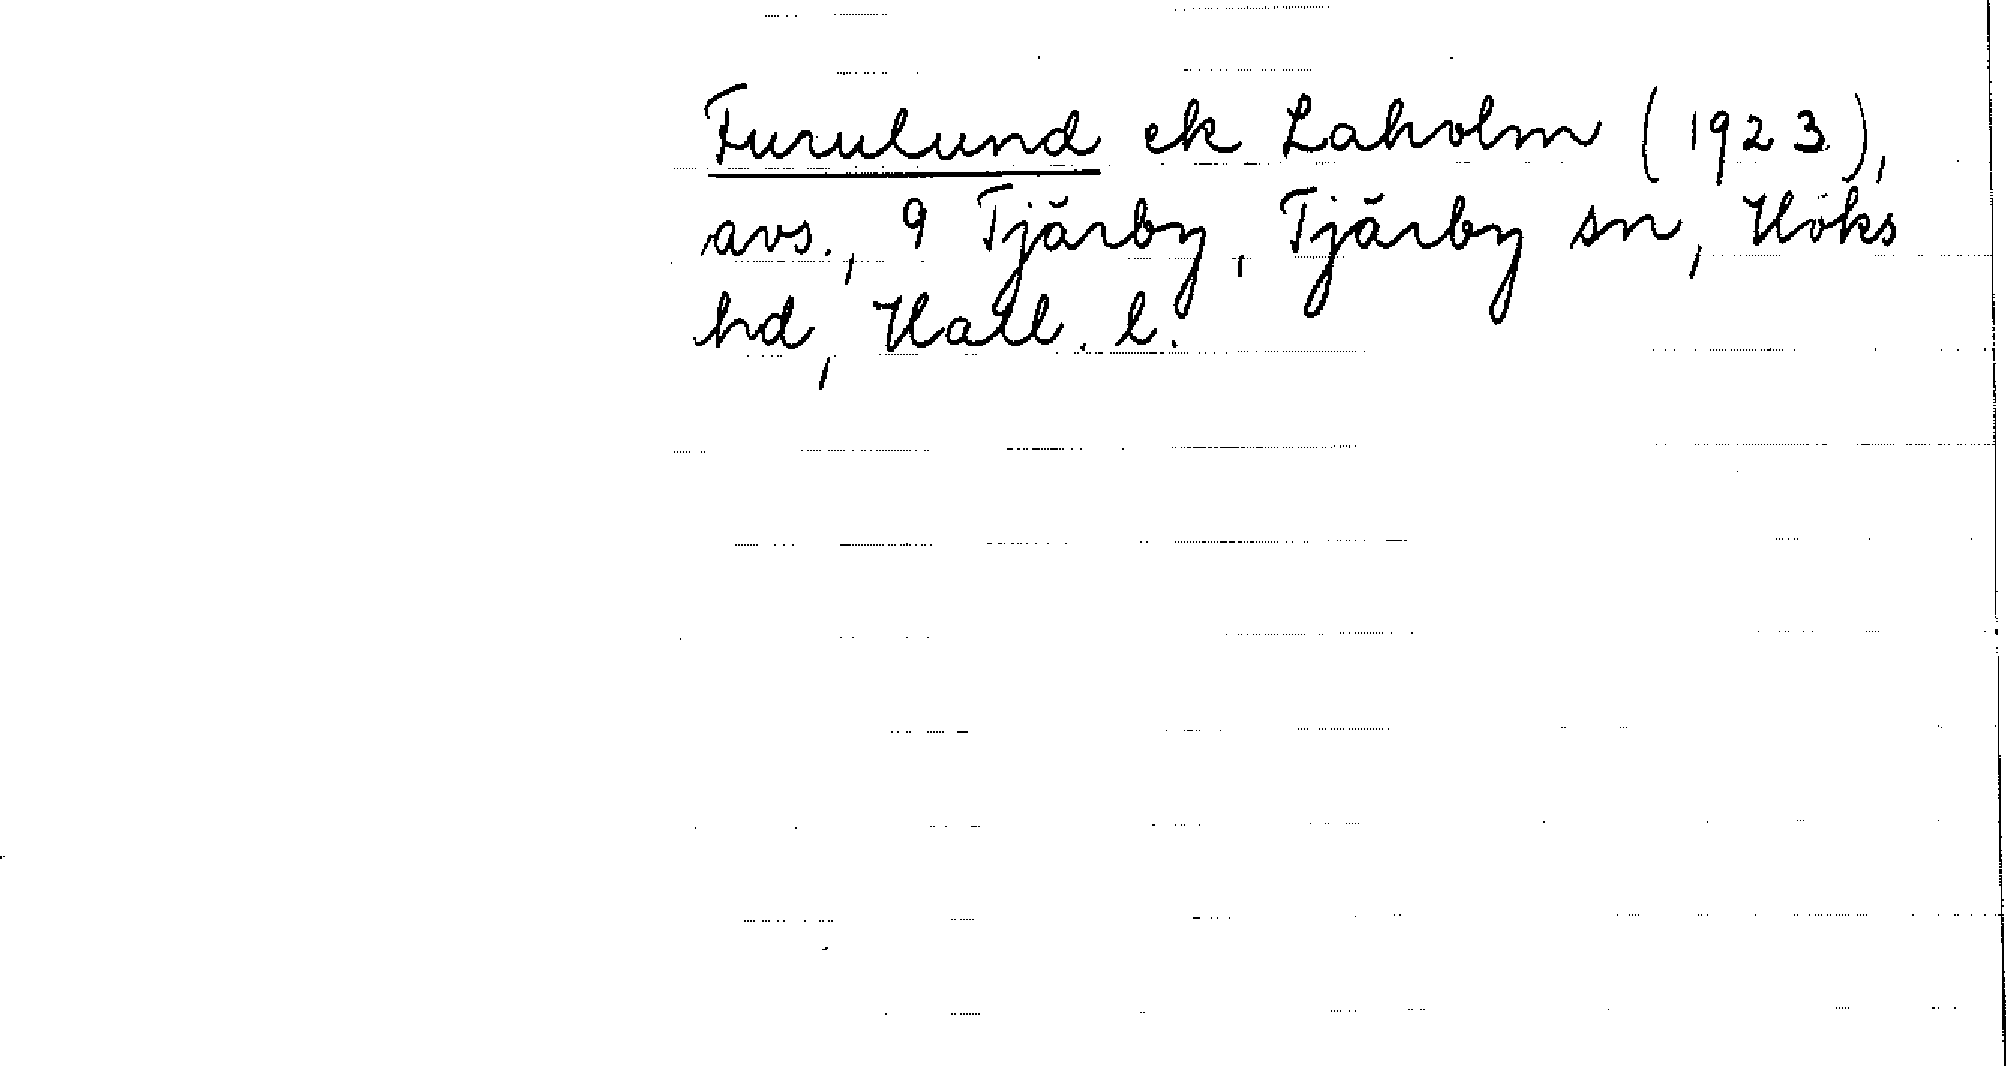 Furulund ek Laholm (1923),
avs., 9 Tjärby, Tjärby sn, Höks
hd, Hall. l.